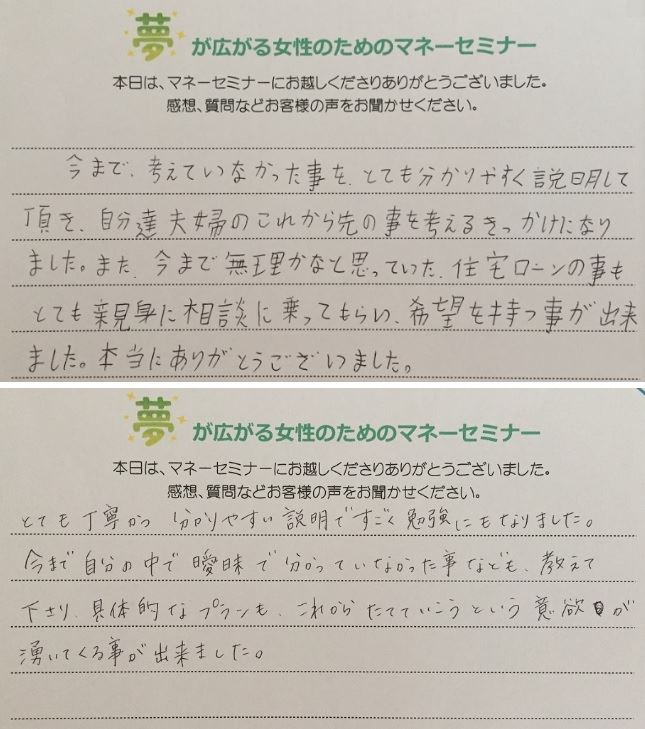 夢が広がる女性のためのマネーセミナー
本日は、マネーセミナーにお越しくださりありがとうございました。
感想、質問などお客様の声をお聞かせください。
今まで、考えていなかった事を、とても分かりやすく説明して
頂き、自分達夫婦のこれから先の事を考えるきっかけになり
ました。また、今まで無理かなと思っていた、住宅ローンの事も
とても親身に相談に乗ってもらい、希望を持つ事が出来
ました。本当にありがとうございました。
夢が広がる女性のためのマネーセミナー
本日は、マネーセミナーにお越しくださりありがとうございました。
感想、質問などお客様の声をお聞かせください。
とても丁寧かつ分かりやすい説明ですごく勉強にもなりました。
今まで自分の中で曖昧で分かっていなかった事なども、教えて
下さり、具体的なプランも、これからたてていこうという意欲が
湧いてくる事が出来ました。